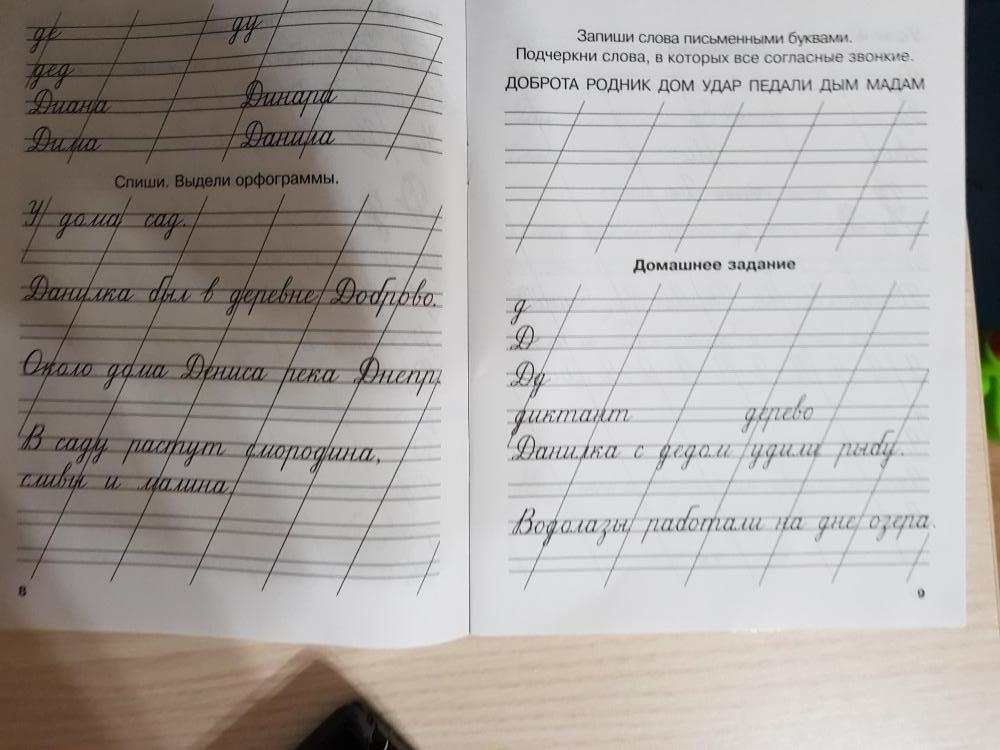 де ду
дед
Диана Динара
Дима Данила
Спиши. Выдели орфограммы.
У дома сад.
Данилка был в деревне Доброво.
Около дома Дениса река Днепр.
В саду растут смородина,
сливы и малина.
8
Запиши слова письменными буквами.
Подчеркни слова, в которых все согласные звонкие.
ДОБРОТА РОДНИК ДОМ УДАР ПЕДАЛИ ДЫМ МАДАМ
Домашнее задание
д
Д
Дд
диктант дерево
Данилка с дедом удили рыбу.
Водолазы работали на дне озера.
9